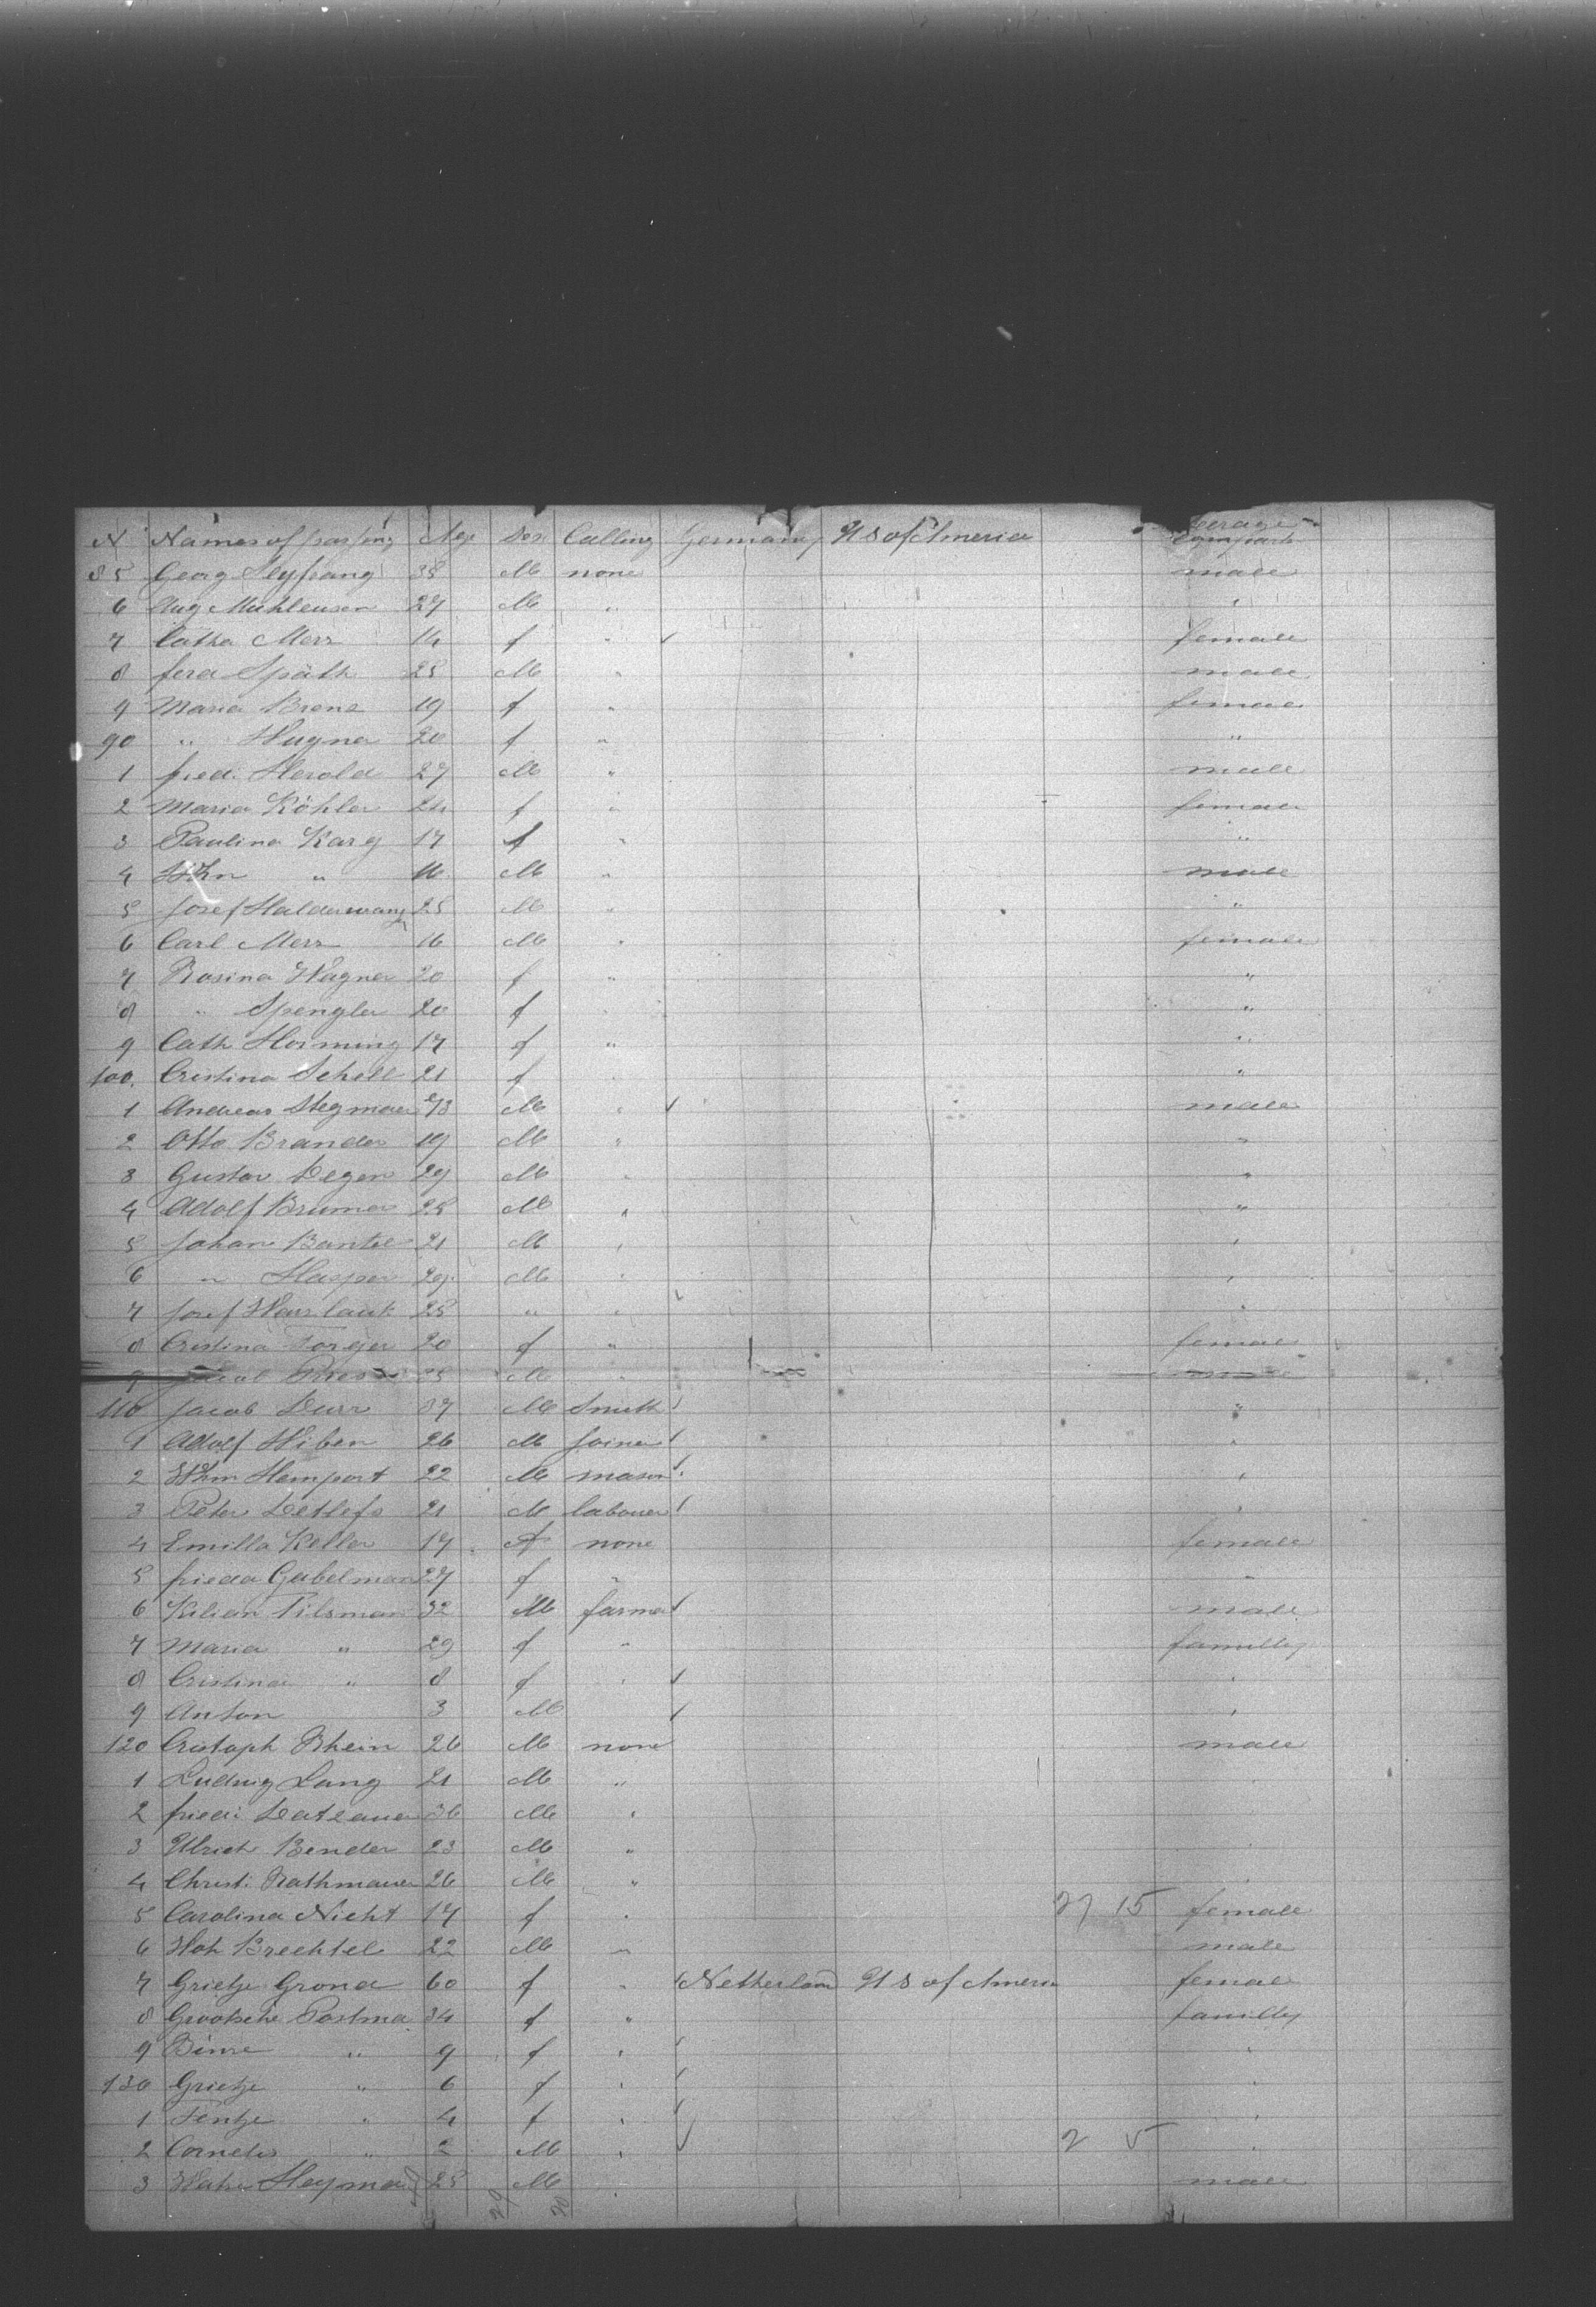 N Names of passing Age Sex Calling Germany U S of America Steerage Compart
85 Georg Seyfrang 38 M none male
6 Aug Muhleusen 27 M " "
7 Catha Merz 14 f " female
8 ferd Späth 25 M " male
9 Maria Brenz 19 f " female
90 " Wagner 20 f " "
1 friedr Herold 27 M " male
2 Maria Köhler 24 f " female
3 Paulina Karg 17 f " "
4 Whn " 16 M " male
5 Josef Halderwang 25 M " "
6 Carl Merz 16 M " female
7 Rosina Wagner 20 f " "
8 " Spengler 20 f " "
9 Cath Horning 17 f " "
100 Cristina Schell 21 f " "
1 Andreas Stegmaier M " male
2 Otto Brander 19 M " "
3 Gustav Degen 29 M " "
4 Adolf Brumer 28 M " "
5 Johan Bantel 21 M " "
6 " Hasper 29 M " "
7 Josef 25 " " "
8 Cristina forger 20 f " female
9 Jacob 25 M " male
110 Jacob Durr 37 M Smith "
1 Adolf Hiben 26 M joiner "
2 Whm Hemport 22 M mason "
3 Peter Detlefs 21 M labouer "
4 Emilla Keller 17 f none female
5 frieda Gabelman 27 f " "
6 Kilian Pilsman 32 M farmer male
7 Maria " 29 f " familly
8 Cristina " 8 f " "
9 Anton 3 M "
120 Cristoph Rhein 26 M none male
1 Ludwig Lang 21 M "
2 friedr 36 M "
3 Ulrich Bender 23 M "
4 Christ. Rathmauer 26 M "
5 Carolina Nicht 17 f " 27 15 female
6 Hoh Brechtel 22 M " male
7 Grietje Grond 60 f " Netherland U S of America female
8 Grootsche Postma 34 f " familly
9 " 9 f " "
130 Grietje " 6 f " "
1 Fentje " 4 f " "
2 Cornelis " 2 M " 2 5 "
3 Heyman 25 M " male